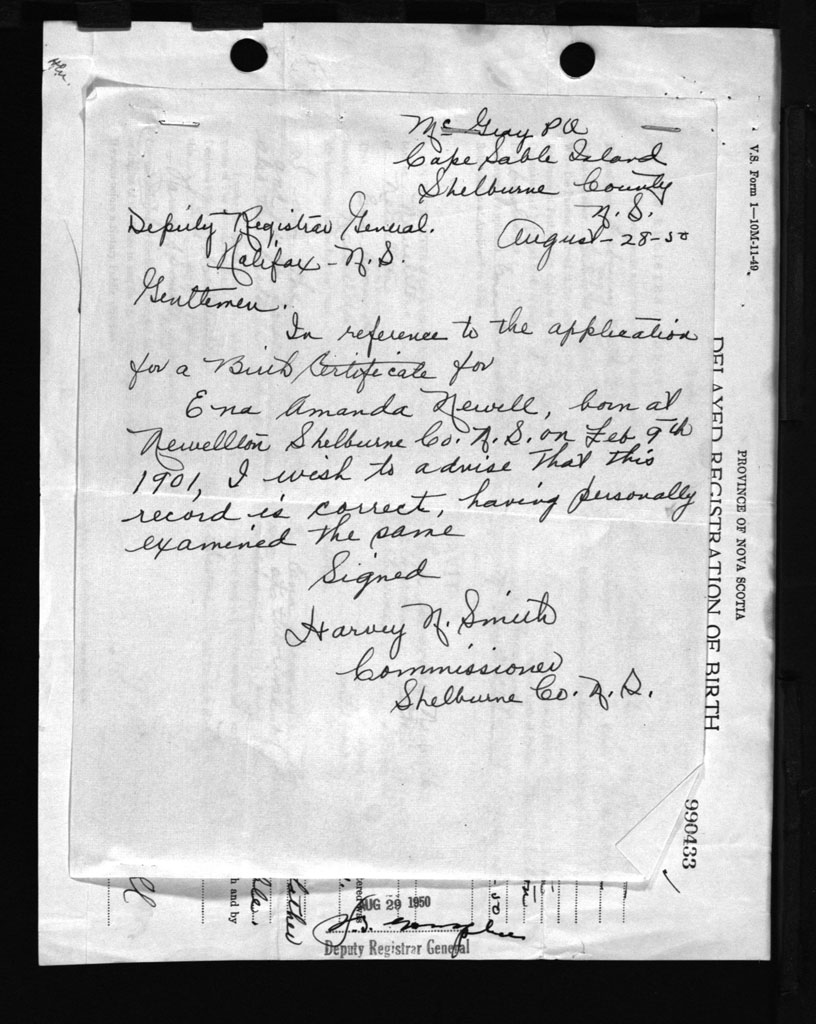 Mc Gray P O
Cape Sable Island
Shelburne County
N. S.
August - 28 - 50
Deputy Registrar General.
Halifax - N. S.
Gentlemen.
In reference to the application
for a Birth Certificate for
Ena Amanda Newell, born at
Newellton Shelburne Co. N. S. on Feb 9th
1901, I wish to advise that this
record is correct, having personally
examined the same
Signed
Harvey N. Smith
Commissioner
Shelburne Co. N. S.
V.S. Form 1—10M-11-49.
PROVINCE OF NOVA SCOTIA
DELAYED REGISTRATION OF BIRTH
990433
h and by
AUG 29 1950
Deputy Registrar General